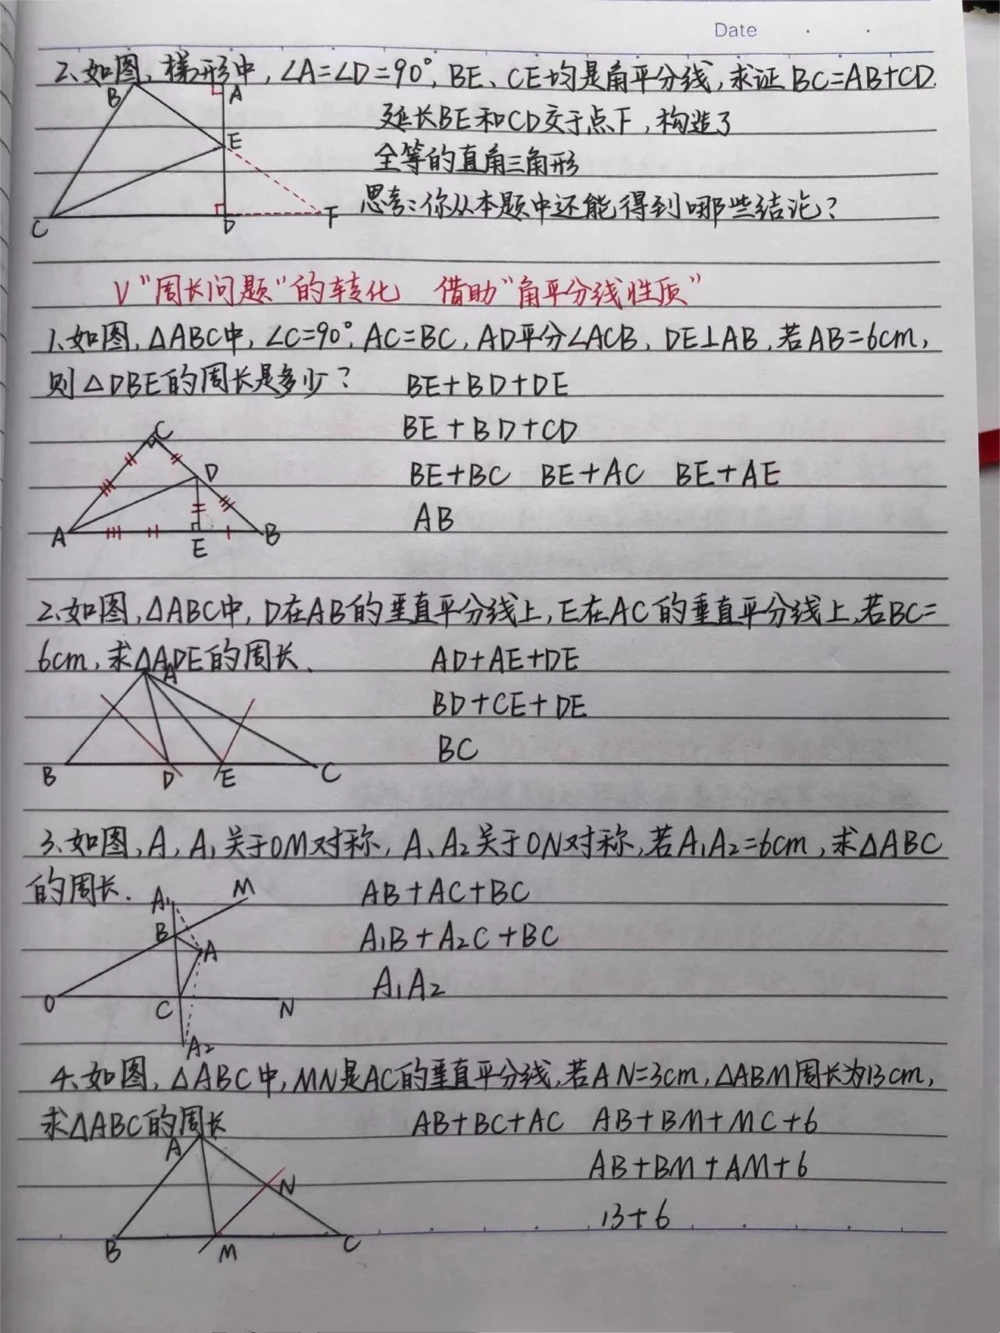 Date
2、如图，梯形中，∠A=∠D=90°，BE、CE均是角平分线，求证BC=AB+CD.
延长BE和CD交于点F，构造了
全等的直角三角形
思考：你从本题中还能得到哪些结论？
B A E C D F
V "周长问题"的转化 借助"角平分线性质"
1、如图，△ABC中，∠C=90°，AC=BC，AD平分∠ACB，DE⊥AB，若AB=6cm，
则△DBE的周长是多少？ BE+BD+DE
BE+BD+CD
BE+BC BE+AC BE+AE
AB
C D A E B
2、如图，△ABC中，D在AB的垂直平分线上，E在AC的垂直平分线上，若BC=
6cm，求△ADE的周长. AD+AE+DE
BD+CE+DE
BC
A B D E C
3、如图，A、A₁关于OM对称，A、A₂关于ON对称，若A₁A₂=6cm，求△ABC
的周长. AB+AC+BC
A₁B+A₂C+BC
A₁A₂
A₁ M B A O C N A₂
4、如图，△ABC中，MN是AC的垂直平分线，若AN=3cm，△ABM周长为13cm，
求△ABC的周长 AB+BC+AC AB+BM+MC+6
AB+BM+AM+6
13+6
A N B M C